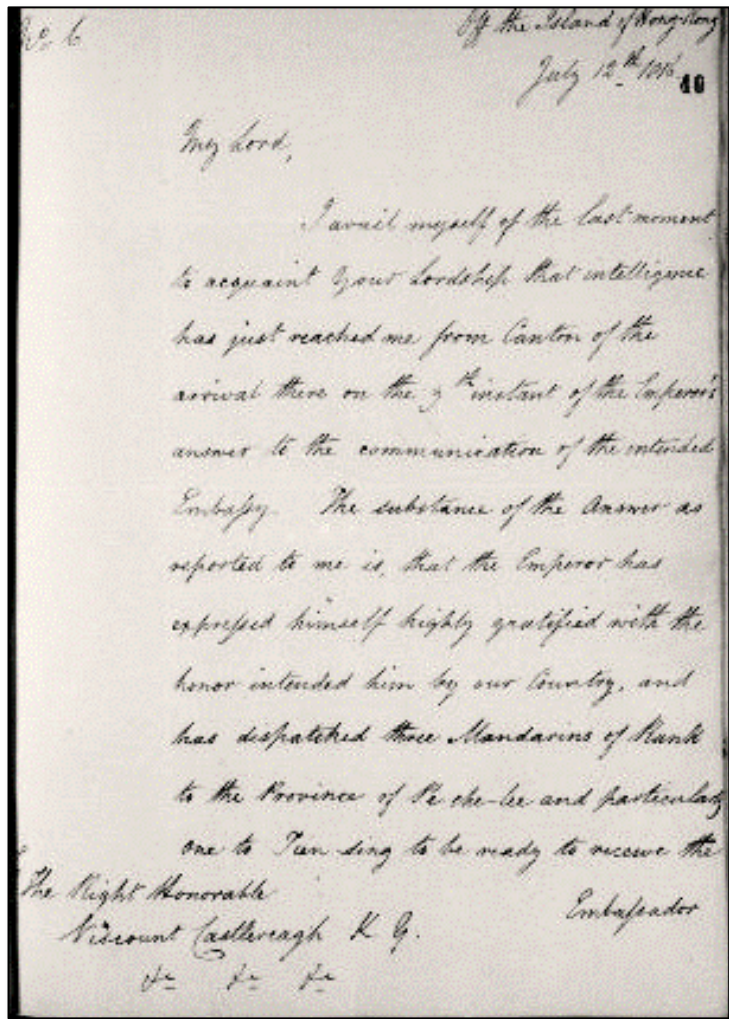 No 6
Off the Island of Hong-Kong
July 12th 1816
40
My Lord,
I avail myself of the last moment
to acquaint Your Lordship that intelligence
has just reached me from Canton of the
arrival there on the 9th instant of the Emperor's
answer to the communication of the intended
Embassy. The substance of the Answer as
reported to me is, that the Emperor has
expressed himself highly gratified with the
honor intended him by our Country, and
has dispatched three Mandarins of Rank
to the Province of Pe che-lee and particularly
one to Tien sing to be ready to receive the
Embassador
The Right Honorable
Viscount Castlereagh K G.
&c &c &c